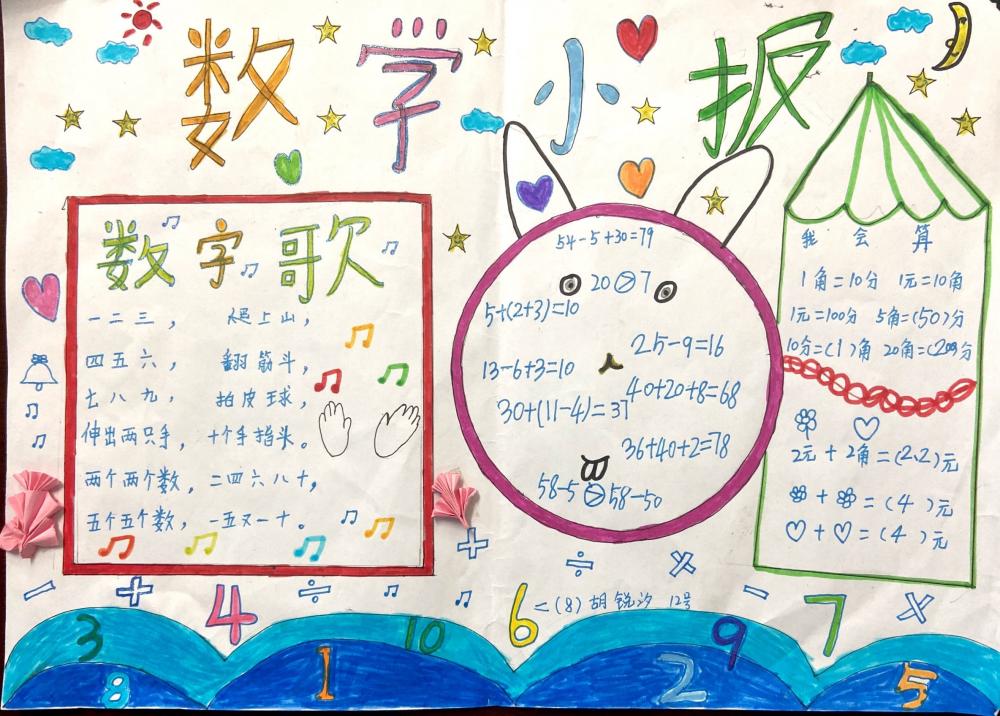 数学小报
数字歌
一二三，爬上山，
四五六，翻筋斗，
七八九，拍皮球，
伸出两只手，十个手指头。
两个两个数，二四六八十，
五个五个数，一五又一十。
54-5+30=79
20>7
5+(2+3)=10
25-9=16
13-6+3=10
40+20+8=68
30+(11-4)=37
36+40+2=78
58-5>58-50
我会算
1角=10分 1元=10角
1元=100分 5角=(50)分
10分=(1)角 20角=(200)分
2元+2角=(2.2)元
+ =(4)元
♡+♡=(4)元
- + 4 ÷ + ÷ × - 7 ×
6=(8)胡锐汐 12号
3 10 9
8 1 2 5